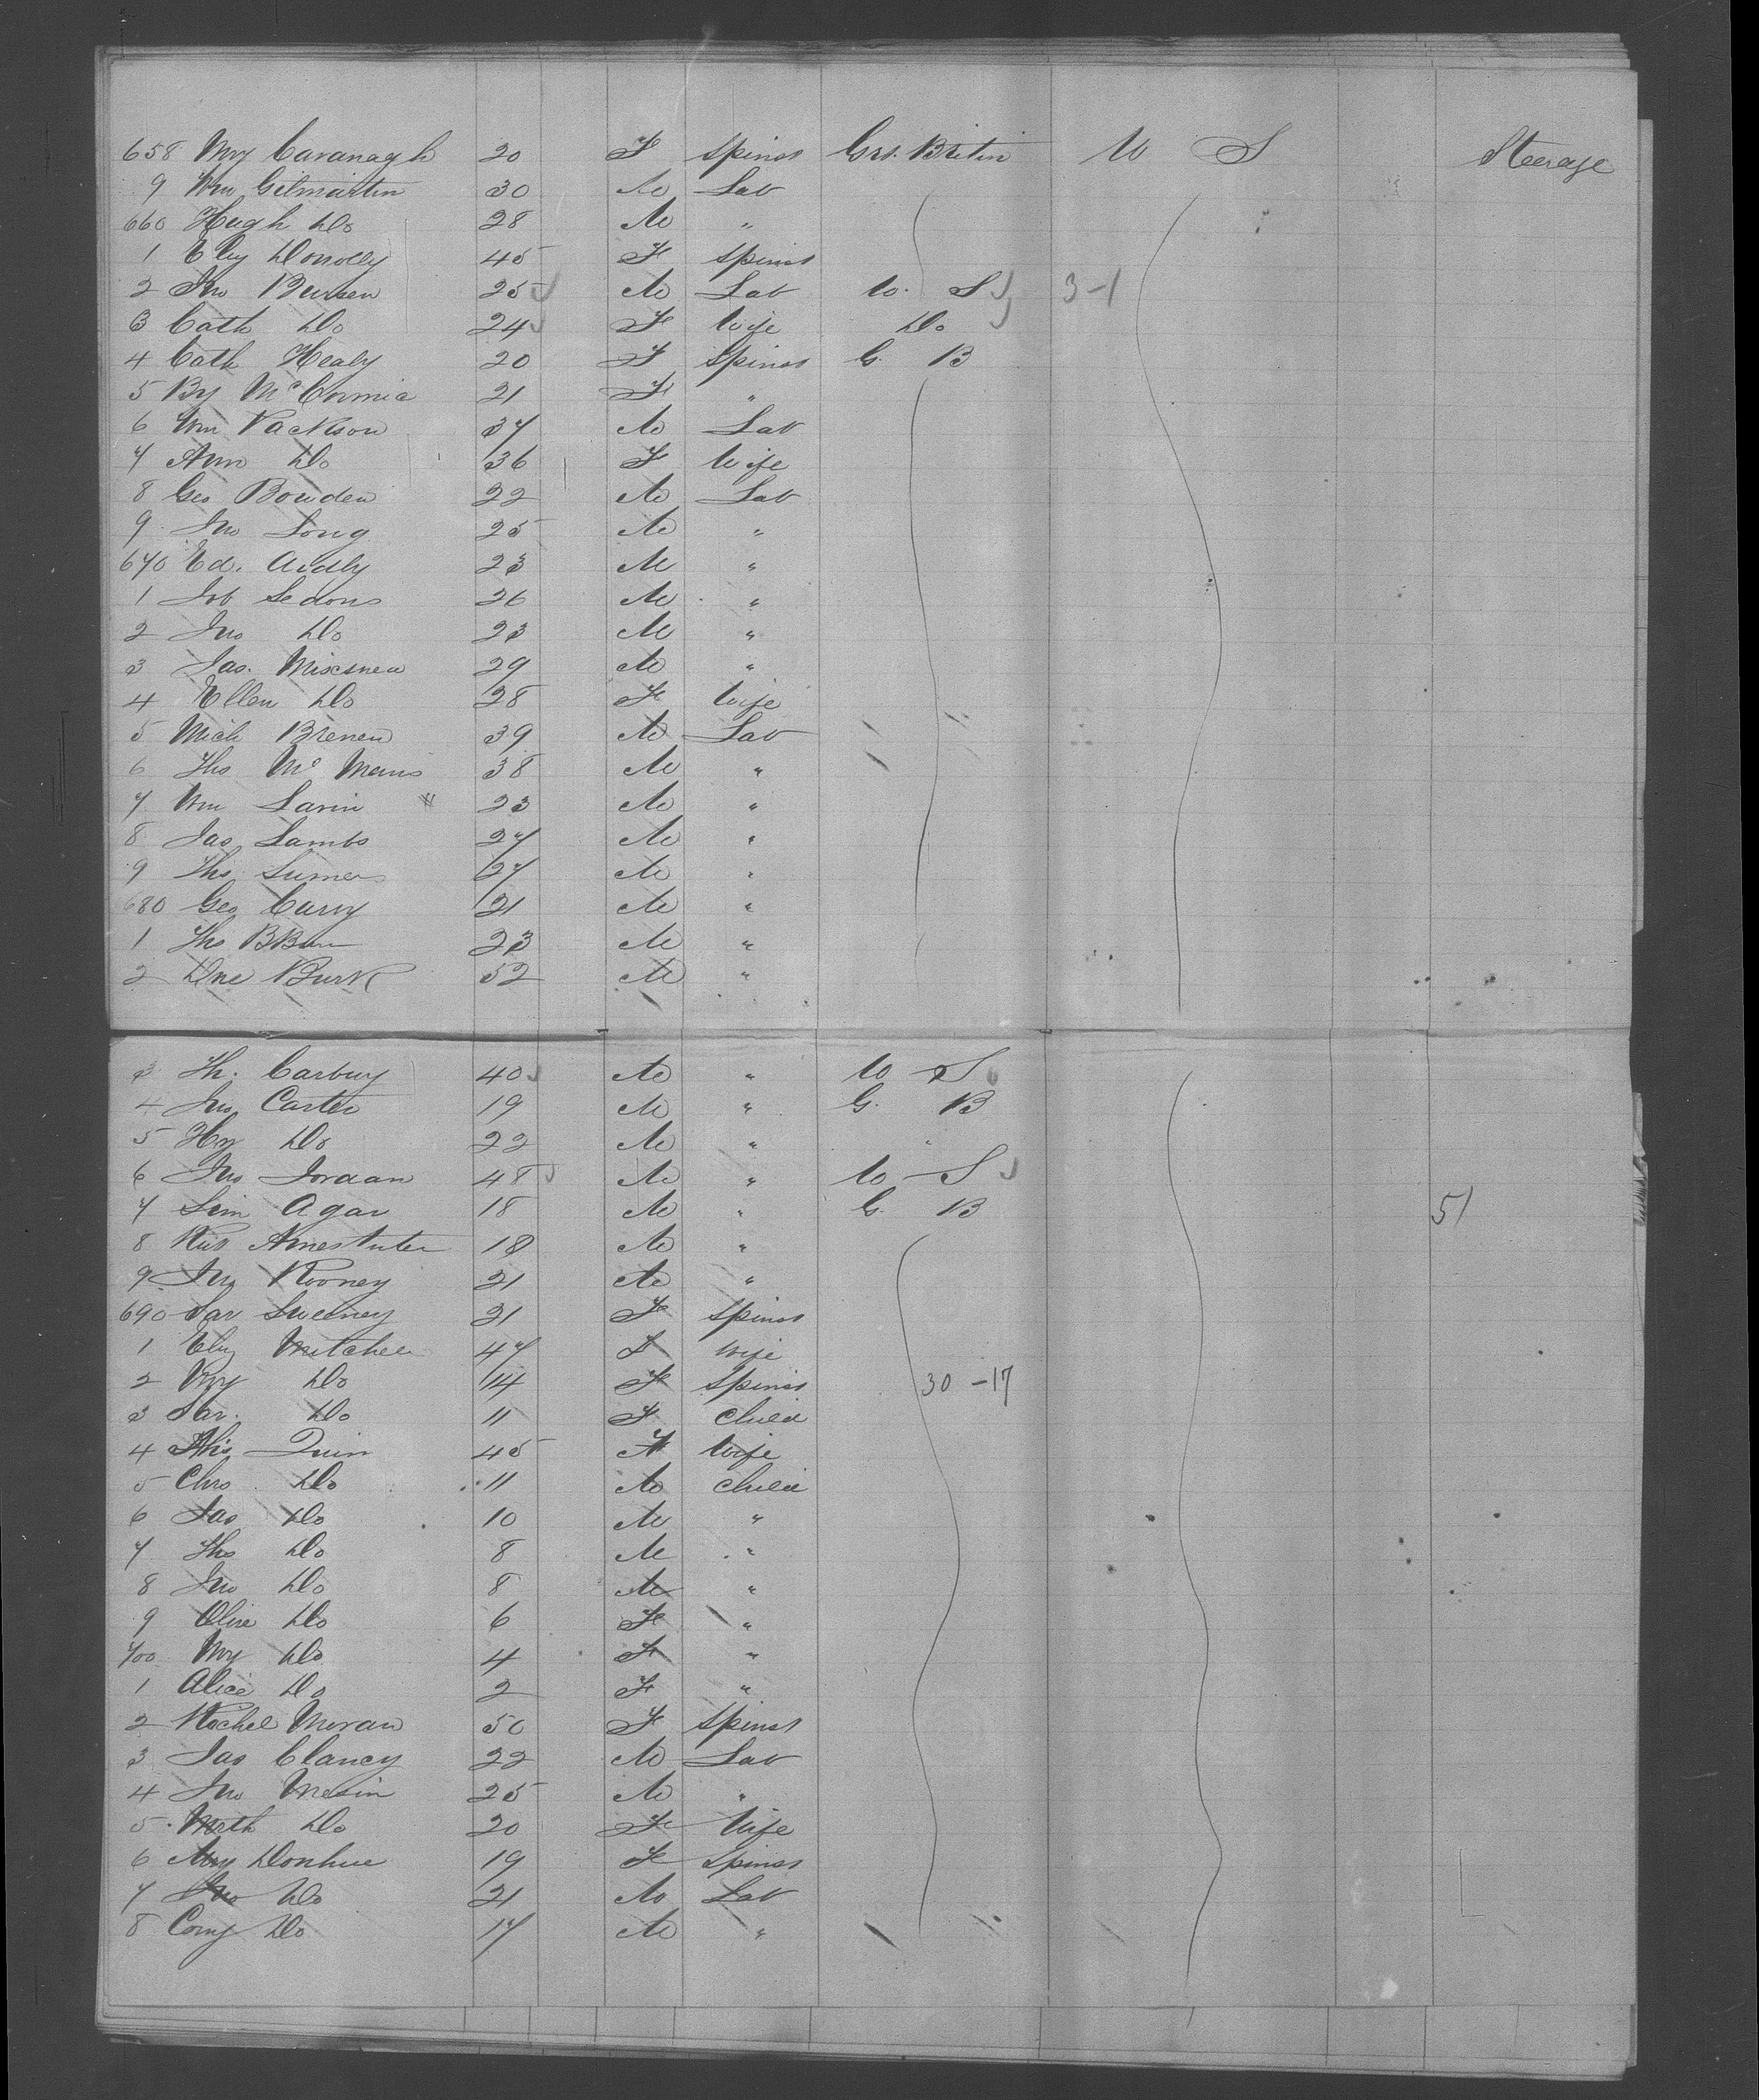 658 Mry Cavanagh 20 F Spinst Grt. Britin U S Steerage
9 Wm Gilmartin 30 M Lab
660 Hugh Do 28 M "
1 Eliz Donolly 45 F Spinst
2 Jno Bursen 25 M Lab U. S 3-1
3 Cath Do 24 F Wife Do
4 Cath Healy 20 F Spinst G. B
5 By McCormic 21 F "
6 Wm Packson 37 M Lab
7 Ann Do 36 F Wife
8 Geo Bowden 22 M Lab
9 Jno Long 25 M "
670 Ed. Ardly 23 M "
1 Job Sedons 26 M "
2 Jno Do 23 M "
3 Jas. 29 M "
4 Ellen Do 28 F Wife
5 Mich Brenen 39 M Lab
6 Ths McManus 38 M "
7 Wm Larin " 23 M "
8 Jas Lambs 27 M "
9 Ths Sumers 27 M "
680 Geo Curry 21 M "
1 Ths 23 M "
2 Burk 52 M "
3 Th. Carbury 40 M " U S
4 Jno Carter 19 M " G. B
5 Hy Do 22 M " "
6 Jno Jordan 48 M " U S
7 Sim Agar 18 M " G. B 51
8 18 M "
9 Jno Rooney 21 M "
690 Sar Sweeney 21 F Spinst
1 Eliz Mitchell 47 F Wife
2 Mry Do 14 F Spinst 30-17
3 Sar. Do 11 F Child
4 Quin 45 F Wife
5 Chrs Do 11 M Child
6 Jas Do 10 M "
7 Ths Do 8 M "
8 Jno Do 8 M "
9 Olive Do 6 F "
700 Mry Do 4 F "
1 Alice Do 2 F "
2 Rachel Moran 50 F Spinst
3 Jas Clancy 22 M Lab
4 Jno 25 M "
5 Do 20 F Wife
6 Mry Donhue 19 F Spinst
7 Jno Do 21 M Lab
8 Corny Do 17 M "